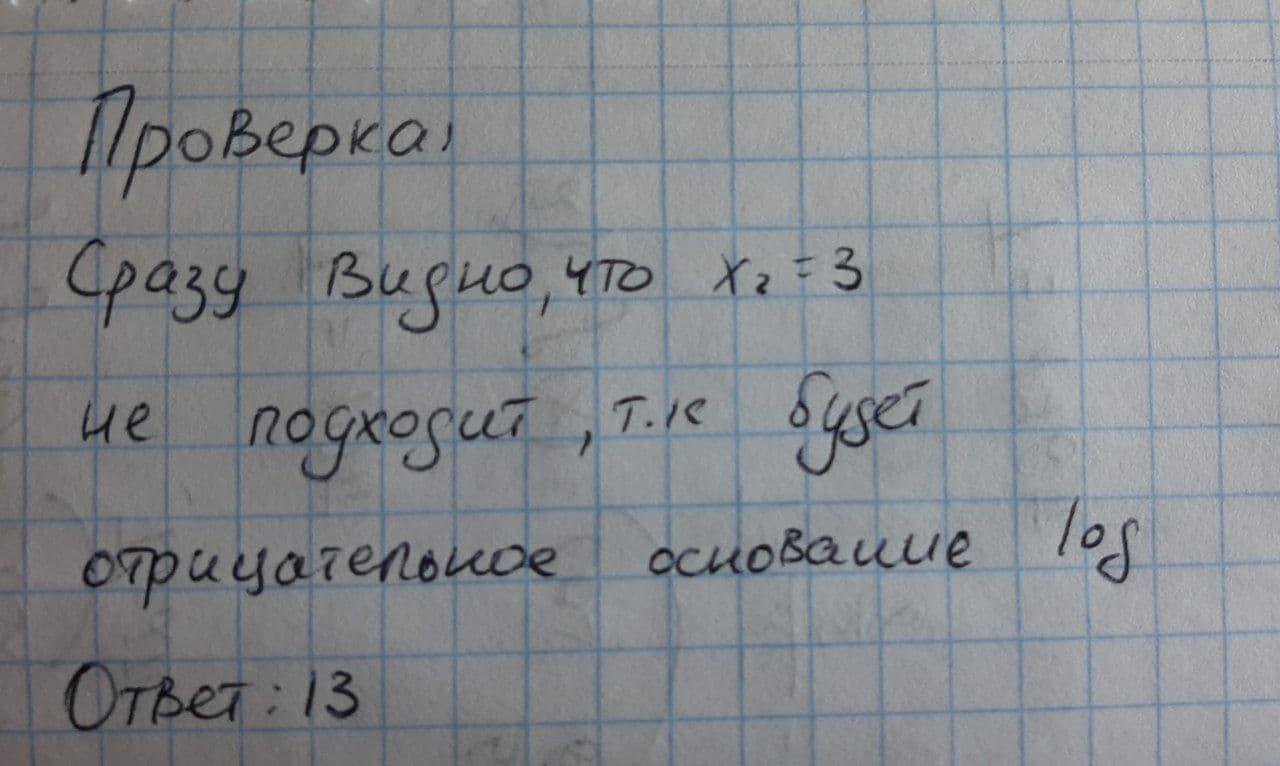 Проверка,
Сразу видно, что x₂ = 3
не подходит, т.к будет
отрицательное основание log
Ответ: 13